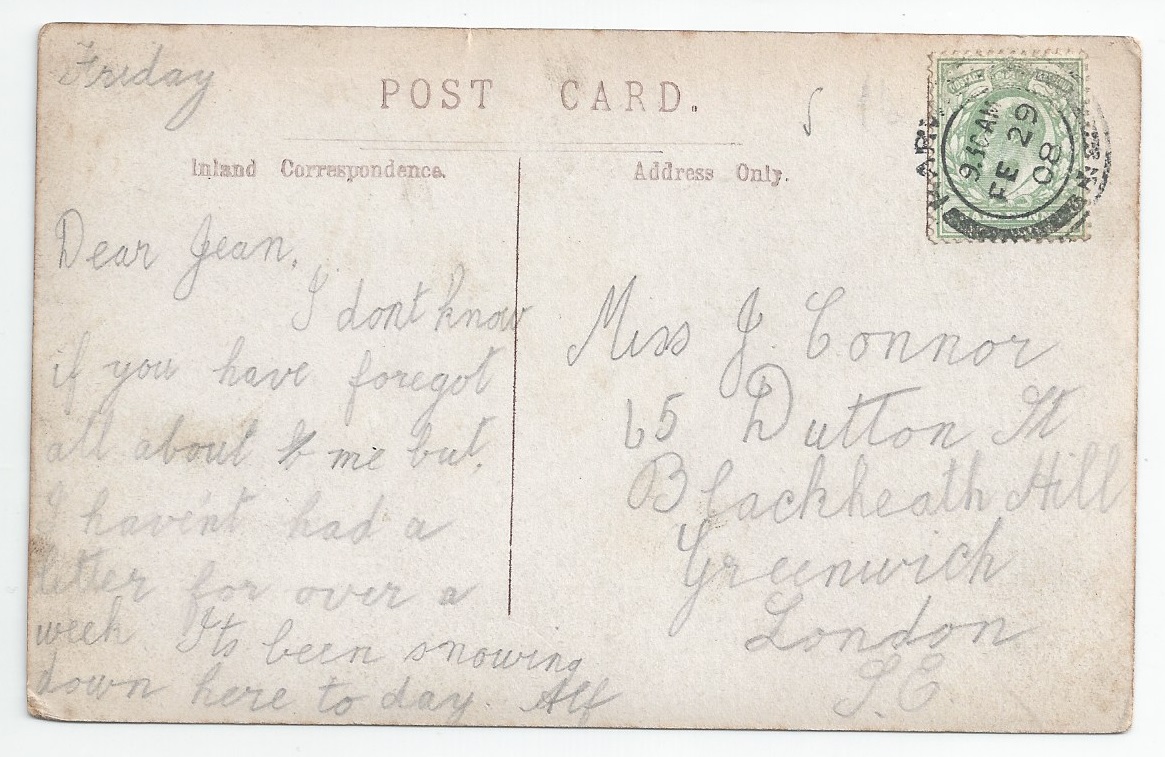 Friday
POST CARD.
Inland Correspondence.
Address Only.
9.30 AM
FE 29
08
Dear Jean,
I dont know
if you have foregot
all about me but,
I haven't had a
letter for over a
week Its been snowing
down here to day. Alf
Miss J. Connor
65 Dutton St
Blackheath Hill
Greenwich
London
S.E